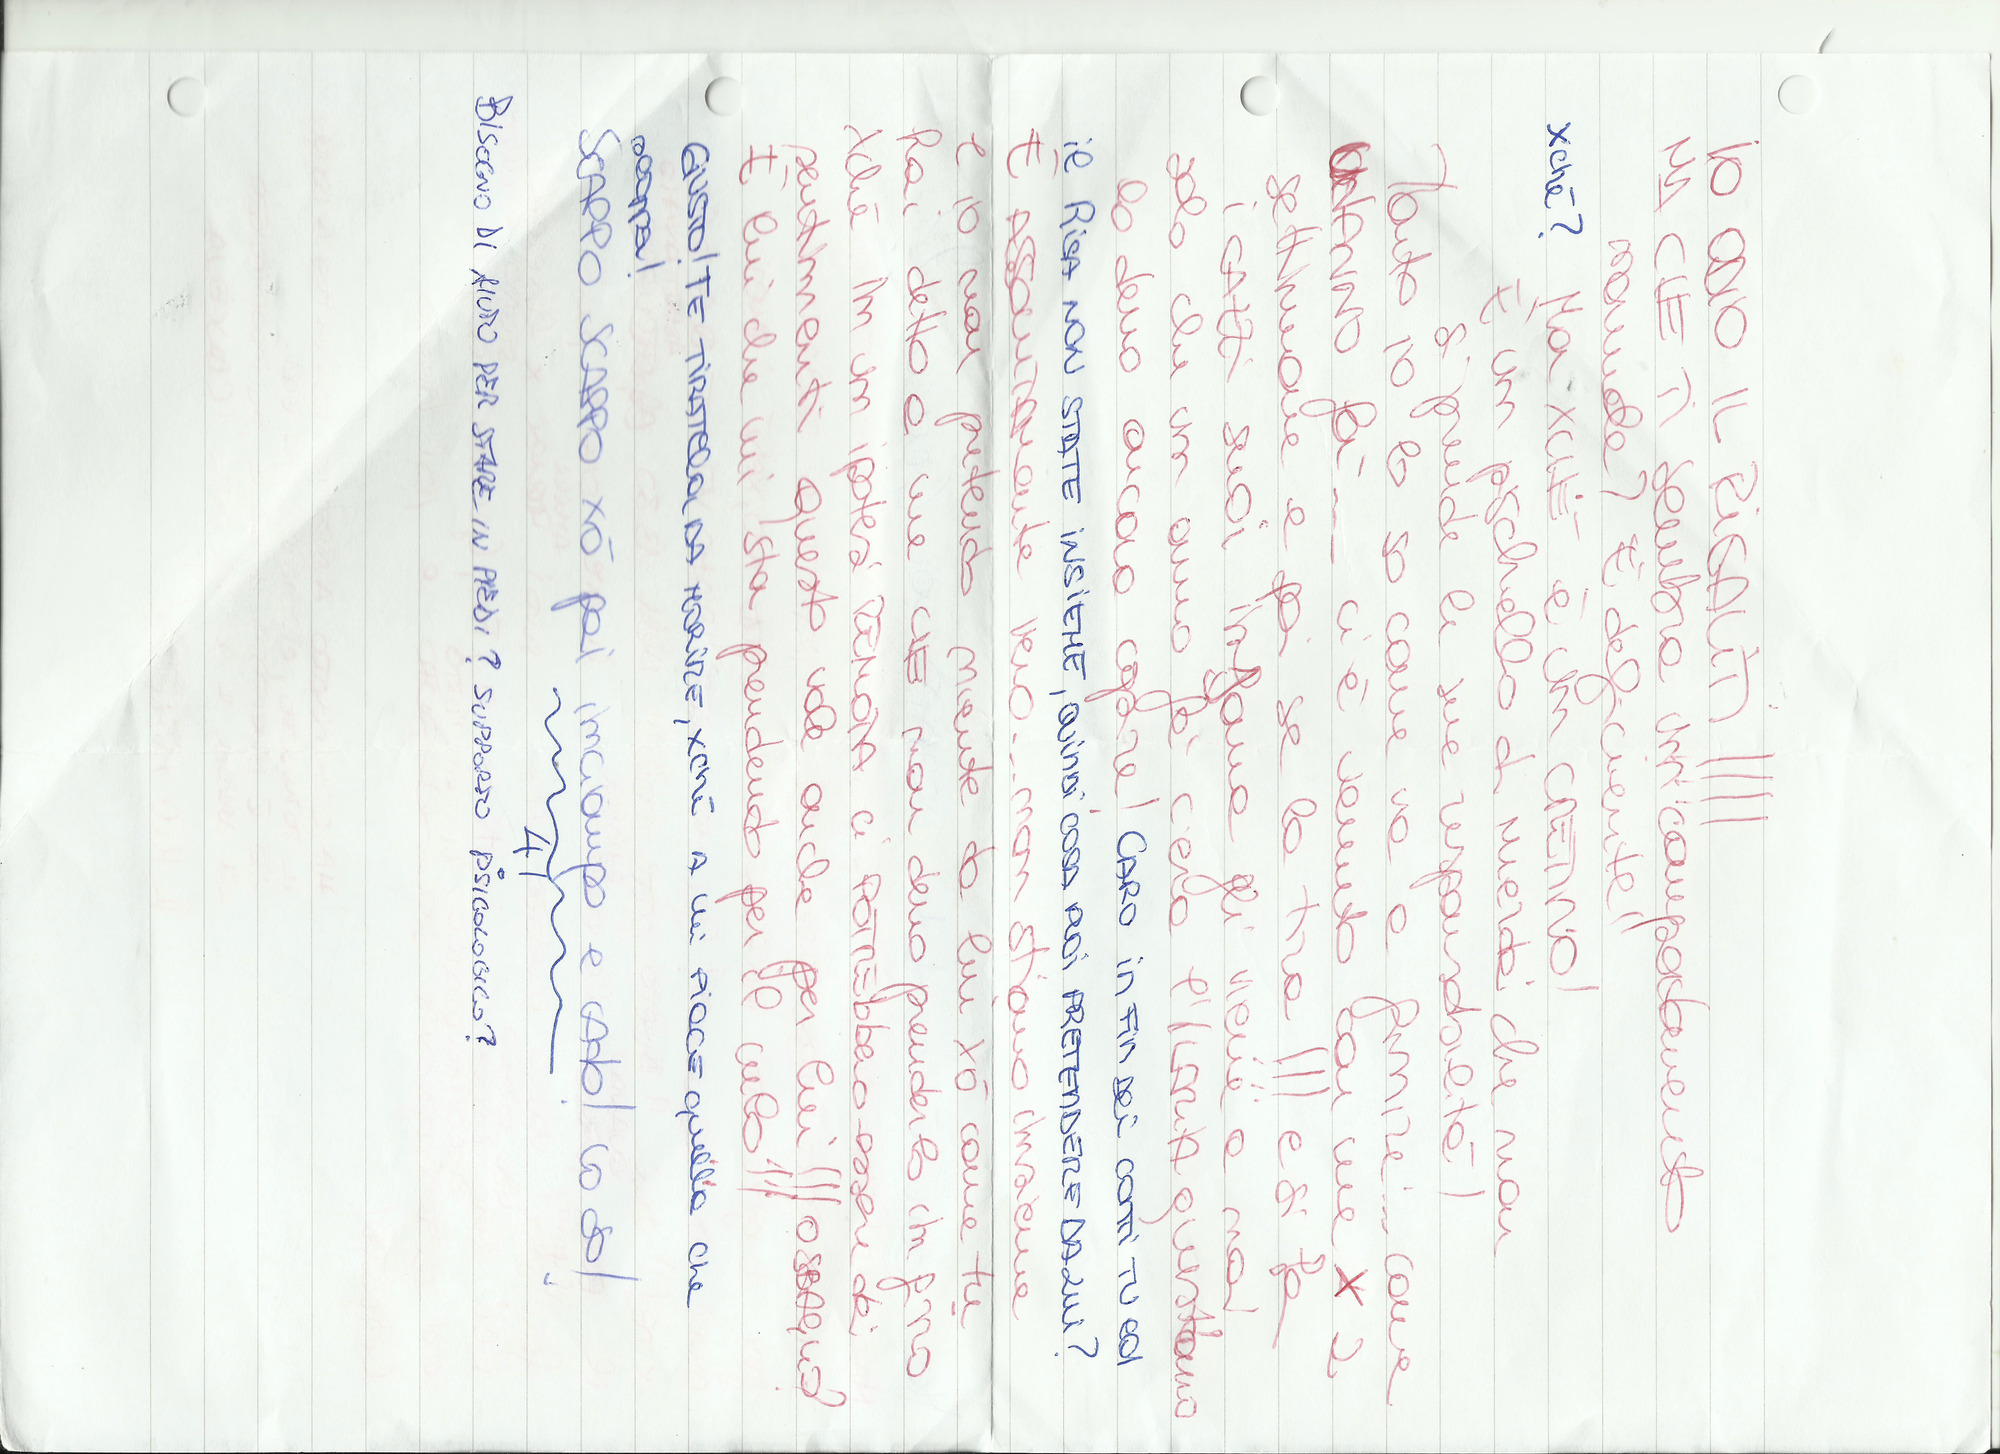 IO ODIO IL RIGALIT!!!!
MA CHE TI sembra un comportamento
normale? È deficiente!!
xché? Ma XCHÈ è un CRETINO!
È un pischello di merda che non
si prende le sue responsabilità!
Tanto io lo so come va a finire... come
ANNO fa... ci è venuto con me x 2
settimane e poi se la tira!!! e si fa
i CAZZI suoi infame gli viene a noi
solo che un anno fa c'era E' quest'anno
lo devo ancora capire! CARO in fin dei conti tu col
il RIGA NON STATE INSIEME, quindi cosa puoi PRETENDERE DA LUI?
È ASSOLUTAmente vero... non stiamo insieme
e io non pretendo niente da lui xò come tu
hai detto a me CHE non devo prenderlo in giro
xchè in un ipotesi REMOTA ci POTREbbero essere dei
sentimenti questo vale anche per lui!!! O SBAGLIO?
È lui che mi sta prendendo per il culo!!!
GIUSTO! TE TIRATELA DA MORIRE, XCHÈ A lui PIACE quella che
SCAPPO SCAPPO xò poi inciampo e CADO! Lo so!
BISOGNO DI AIUTO PER STARE IN PIEDI? SUPPORTO PSICOLOGICO?